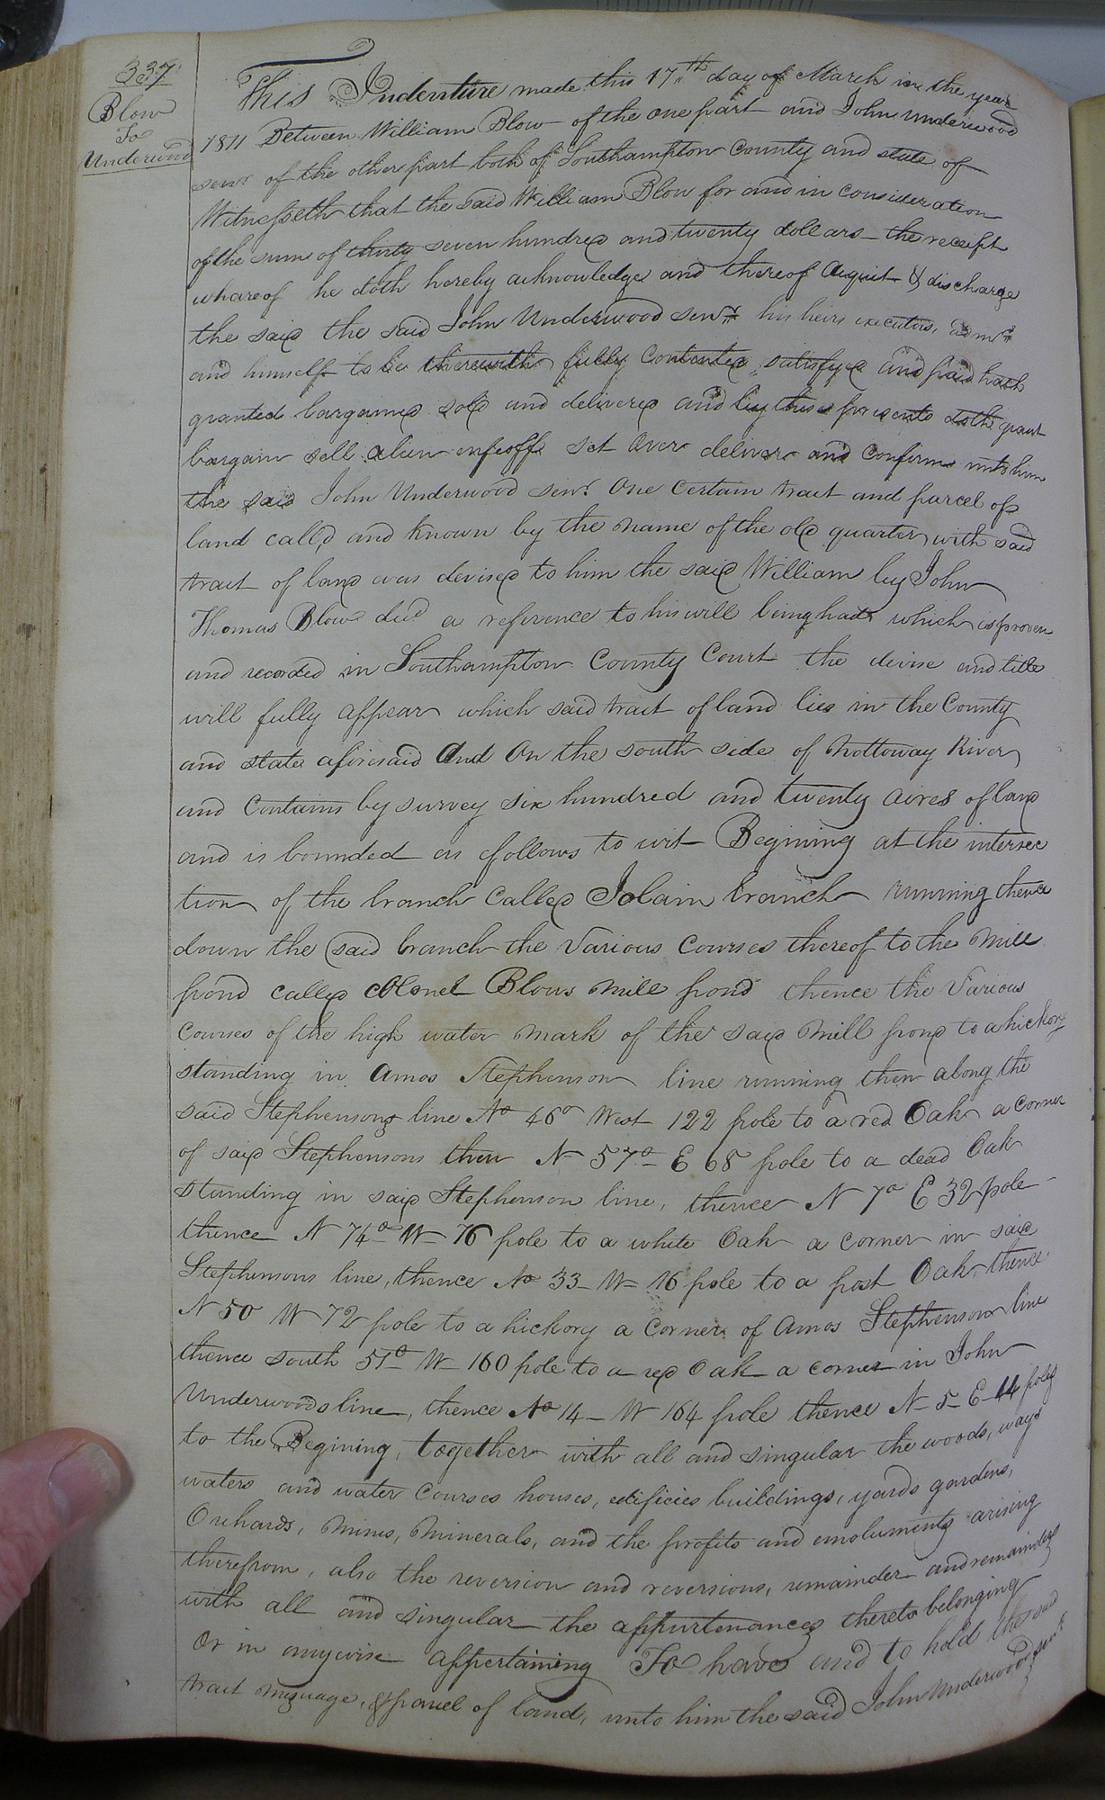 337
Blow
To
Underwood
This Indenture made this 17th day of March in the year
1811 Between William Blow of the one part and John Underwood
senr of the other part both of Southampton County and state of
Witnesseth that the said William Blow for and in consideration
of the sum of thirty seven hundred and twenty dollars the receipt
whareof he doth hereby acknowledge and thereof Acquit & discharge
the said the said John Underwood senr his heirs executors, admrs
and himself to be therewith fully Contented, satisfyed and paid hath
granted bargained sold and delivered and by these presents doth grant
bargain sell alien infeoff set over deliver and confirm unto him
the said John Underwood senr. One certain tract and parcel of
land call'd and known by the name of the old quarter with said
tract of land was devised to him the said William by John
Thomas Blow decd a reference to his will being had which is proven
and recorded in Southampton County Court the devise and title
will fully appear which said tract of land lies in the County
and state aforesaid And On the south side of Nottoway River
and Contains by survey six hundred and twenty acres of land
and is bounded as follows to wit Begining at the intersec
tion of the branch called branch running thence
down the said branch the Various Courses thereof to the Mill
pond called Colonel Blows Mill pond thence the Various
Courses of the high water mark of the said Mill pond to a hickory
standing in Amos Stephenson line running then along the
said Stephensons line No 46o West 122 pole to a red Oak a corner
of said Stephensons then N 57o E 68 pole to a dead Oak
standing in said Stephenson line, thence N 7o E 32 pole
thence N 74o W 76 pole to a white Oak a corner in said
Stephensons line, thence No 33 W 16 pole to a post Oak thence
N 50 W 72 pole to a hickory a Corner of Amos Stephenson line
thence south 51o W 160 pole to a red Oak a corner in John
Underwoods line, thence No 14 W 164 pole thence N 5 E 44 poles
to the Begining, together with all and singular the woods, ways
waters and water Courses houses, edificies buildings, yards gardens,
Orchards, Mines, Minerals, and the profits and emoluments arising
therefrom, also the reversion and reversions, remainder and remainders
with all and singular the appurtenances thereto belonging
Or in anywise appertaining To have and to hold the said
tract & parcel of land, unto him the said John Underwood senr.